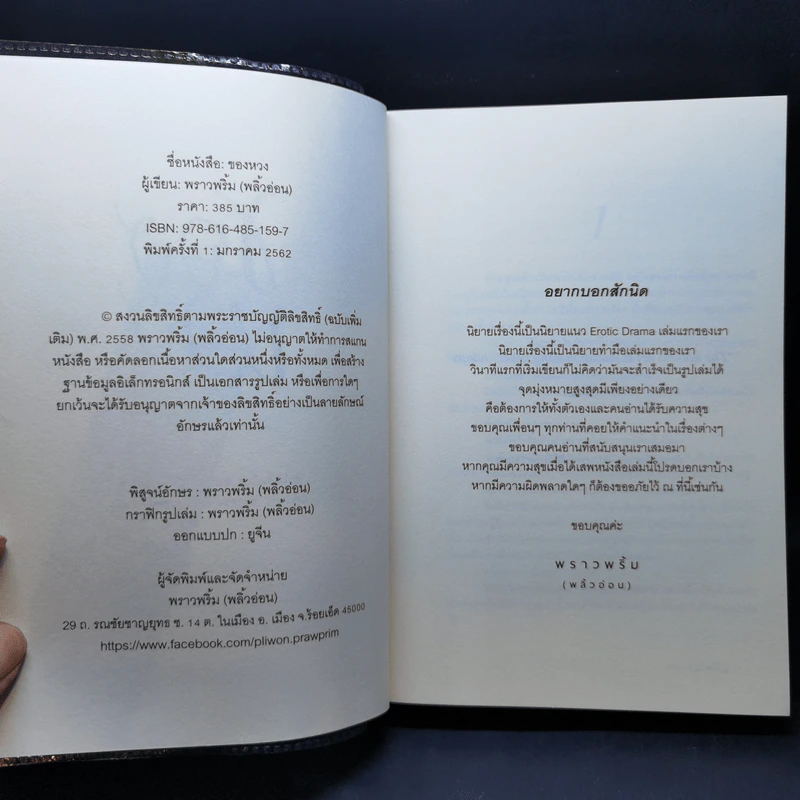 ชื่อหนังสือ: ของหวง
ผู้เขียน: พราวพริ้ม (พลิ้วอ่อน)
ราคา: 385 บาท
ISBN: 978-616-485-159-7
พิมพ์ครั้งที่ 1: มกราคม 2562
© สงวนลิขสิทธิ์ตามพระราชบัญญัติลิขสิทธิ์ (ฉบับเพิ่ม
เติม) พ.ศ. 2558 พราวพริ้ม (พลิ้วอ่อน) ไม่อนุญาตให้ทำการสแกน
หนังสือ หรือคัดลอกเนื้อหาส่วนใดส่วนหนึ่งหรือทั้งหมด เพื่อสร้าง
ฐานข้อมูลอิเล็กทรอนิกส์ เป็นเอกสารรูปเล่ม หรือเพื่อการใดๆ
ยกเว้นจะได้รับอนุญาตจากเจ้าของลิขสิทธิ์อย่างเป็นลายลักษณ์
อักษรแล้วเท่านั้น
พิสูจน์อักษร : พราวพริ้ม (พลิ้วอ่อน)
กราฟิกรูปเล่ม : พราวพริ้ม (พลิ้วอ่อน)
ออกแบบปก : ยูจีน
ผู้จัดพิมพ์และจัดจำหน่าย
พราวพริ้ม (พลิ้วอ่อน)
29 ถ. รณชัยชาญยุทธ ซ. 14 ต. ในเมือง อ. เมือง จ.ร้อยเอ็ด 45000
https://www.facebook.com/pliwon.prawprim
อยากบอกสักนิด
นิยายเรื่องนี้เป็นนิยายแนว Erotic Drama เล่มแรกของเรา
นิยายเรื่องนี้เป็นนิยายทำมือเล่มแรกของเรา
วินาทีแรกที่เริ่มเขียนก็ไม่คิดว่ามันจะสำเร็จเป็นรูปเล่มได้
จุดมุ่งหมายสูงสุดมีเพียงอย่างเดียว
คือต้องการให้ทั้งตัวเองและคนอ่านได้รับความสุข
ขอบคุณเพื่อนๆ ทุกท่านที่คอยให้คำแนะนำในเรื่องต่างๆ
ขอบคุณคนอ่านที่สนับสนุนเราเสมอมา
หากคุณมีความสุขเมื่อได้เสพหนังสือเล่มนี้โปรดบอกเราบ้าง
หากมีความผิดพลาดใดๆ ก็ต้องขออภัยไว้ ณ ที่นี้เช่นกัน
ขอบคุณค่ะ
พราวพริ้ม
(พลิ้วอ่อน)